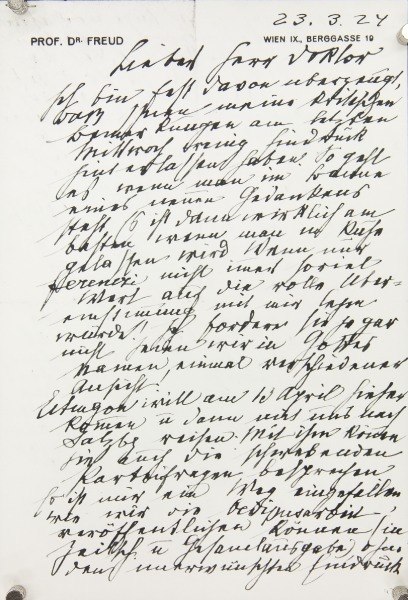 23.3.24
PROF. DR. FREUD WIEN IX., BERGGASSE 19
Lieber Herr Doktor
Ich bin fest davon überzeugt,
daß Ihnen meine kritischen
Bemerkungen am letzten
Mittwoch wenig Eindruck
hinterlassen haben. So geht
es wenn man im Banne
eines neuen Gedankens
steht. Es ist dann wirklich am
besten wenn man in Ruhe
gelassen wird. Wenn nur
Ferenczi nicht immer soviel
Wert auf die volle Über-
einstimmung mit mir legen
würde! Ich fordere sie so gar
nicht. Seien wir in Gottes
Namen einmal verschiedener
Ansicht.
Eitingon will am 13 April hieher
kommen u dann mit uns nach
Salzbg reisen. Mit ihm können
Sie auch die schwebenden
besprechen
So ist mir ein Weg eingefallen
wie wir die
veröffentlichen können (in
Zeitsch u Gesamtausgabe) ohne
den unerwünschten Eindruck